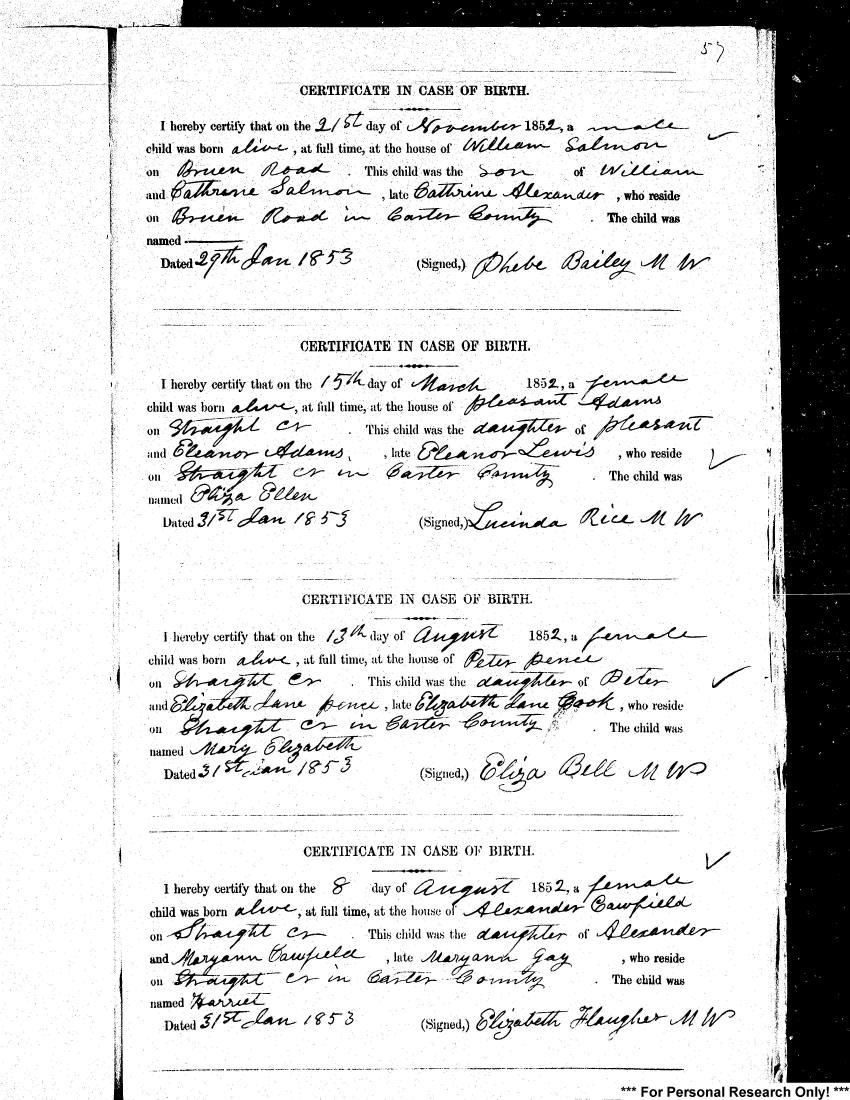 57
CERTIFICATE IN CASE OF BIRTH.
I hereby certify that on the 21st day of November 1852, a male
child was born alive, at full time, at the house of William Salmon
on Bruen Road. This child was the son of William
and Cathrine Salmon, late Cathrine Alexander, who reside
on Bruen Road in Carter County. The child was
named ———
Dated 29th Jan 1853 (Signed,) Phebe Bailey M W
CERTIFICATE IN CASE OF BIRTH.
I hereby certify that on the 15th day of March 1852, a female
child was born alive, at full time, at the house of Pleasant Adams
on Straight Cr. This child was the daughter of Pleasant
and Eleanor Adams, late Eleanor Lewis, who reside
on Straight Cr in Carter County. The child was
named Eliza Ellen
Dated 31st Jan 1853 (Signed,) Lucinda Rice M W
CERTIFICATE IN CASE OF BIRTH.
I hereby certify that on the 13th day of August 1852, a female
child was born alive, at full time, at the house of Peter Pence
on Straight Cr. This child was the daughter of Peter
and Elizabeth Jane Pence, late Elizabeth Jane Cook, who reside
on Straight Cr in Carter County. The child was
named Mary Elizabeth
Dated 31st Jan 1853 (Signed,) Eliza Bell M W
CERTIFICATE IN CASE OF BIRTH.
I hereby certify that on the 8 day of August 1852, a female
child was born alive, at full time, at the house of Alexander Cawfield
on Straight Cr. This child was the daughter of Alexander
and Maryann Cawfield, late Maryann Gay, who reside
on Straight Cr in Carter County. The child was
named Harriet
Dated 31st Jan 1853 (Signed,) Elizabeth Flaugher M W
*** For Personal Research Only! ***